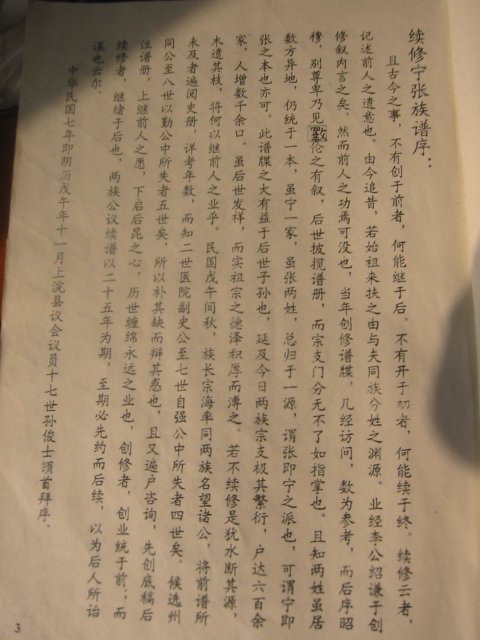 续修宁张族谱序：
且古今之事，不有创于前者，何能继于后。不有开于初者，何能续于终。续修云者，
记述前人之遗意也。由今追昔，若始祖来扶之由与夫同族分姓之渊源。业经李公绍谦于创
修叙内言之矣。然而前人之功焉可没也，当年创修谱牒，几经访问，数为参考，而后序昭
穆，别尊卑乃见彝伦之有叙，后世披揽谱册，而宗支门分无不了如指掌也。且知两姓虽居
数方异地，仍统于一本，虽宁一家，虽张两姓，总归于一源，谓张即宁之派也，可谓宁即
张之本也亦可。此谱牒之大有益于后世子孙也，延及今日两族宗支极其繁衍，户达六百余
家，人增数千余口。虽后世发祥，而实祖宗之德泽积厚而溥之。若不续修是犹水断其源，
木遗其枝，将何以继前人之业乎。民国戊午间秋，族长宗海率同两族名望诸公，将前谱所
未及者遍阅史册，详考年数，而知二世医院副史公至七世自强公中所失者四世矣。候选州
同公至八世以勤公中所失者五世矣，所以补其缺而辩其惑也，且又遍户咨询，先创底稿后
注谱册，上继前人之愿，下启后昆之心，历世缠绵永远之业也，创修者，创业统于前；而
续修者，继绪于后也，两族公议续谱以二十五年为期，至期必先约而后续，以为后人所诒
谋也云尔。
中华民国七年即阴历戊午年十一月上浣县议会议员十七世孙俊士顿首拜序。
3